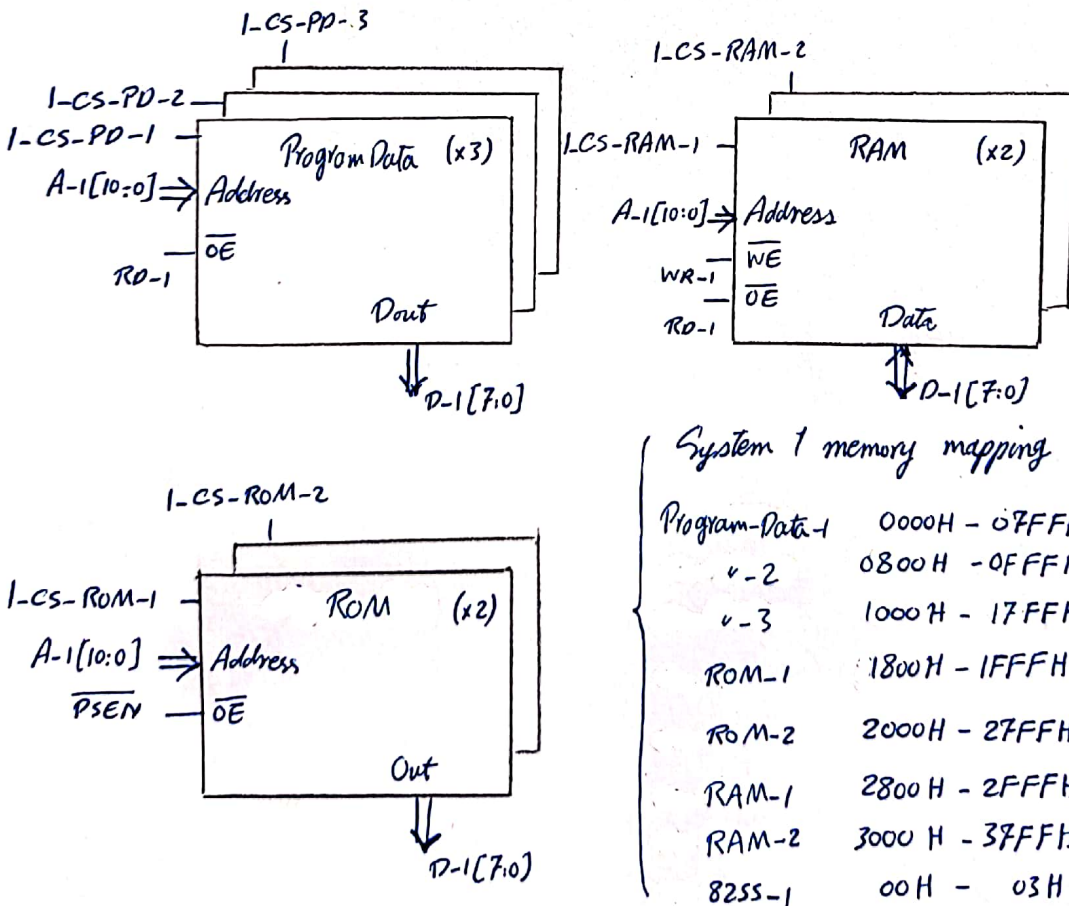 1-CS-PD-3
1-CS-PD-2
1-CS-PD-1
Program Data (x3)
A-1[10:0] ⇒ Address
OE
RD-1
Dout
D-1[7:0]
1-CS-RAM-2
1-CS-RAM-1
RAM (x2)
A-1[10:0] ⇒ Address
WR-1 WE
RD-1 OE
Data
D-1[7:0]
1-CS-ROM-2
1-CS-ROM-1
ROM (x2)
A-1[10:0] ⇒ Address
PSEN OE
Out
D-1[7:0]
System 1 memory mapping
Program-Data-1 0000H - 07FF
〃-2 0800H - 0FFF
〃-3 1000H - 17FF
ROM-1 1800H - 1FFFH
ROM-2 2000H - 27FFH
RAM-1 2800H - 2FFFH
RAM-2 3000H - 37FFH
8255-1 00H - 03H